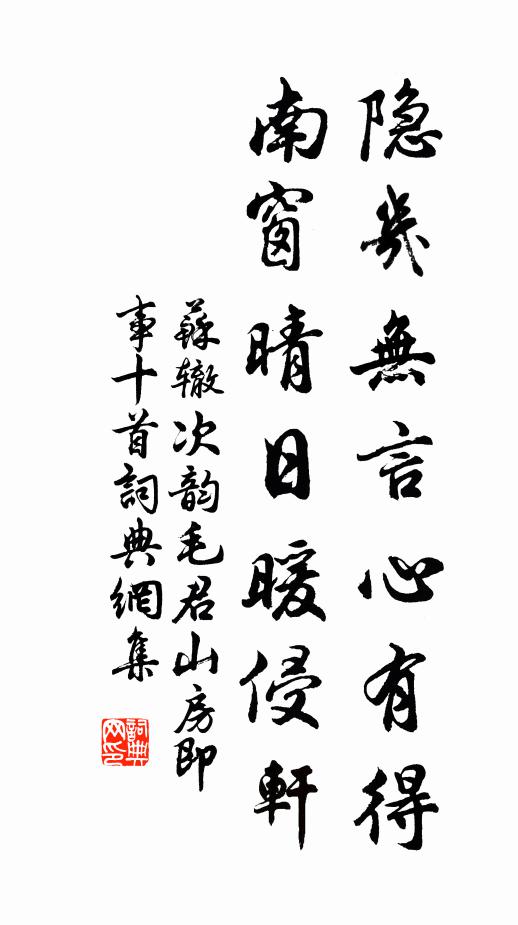 隐幾無言心有得
南窗晴日暖侵軒
蘇辙次韵毛君山房即
事十首詞典網集
詞典
网印